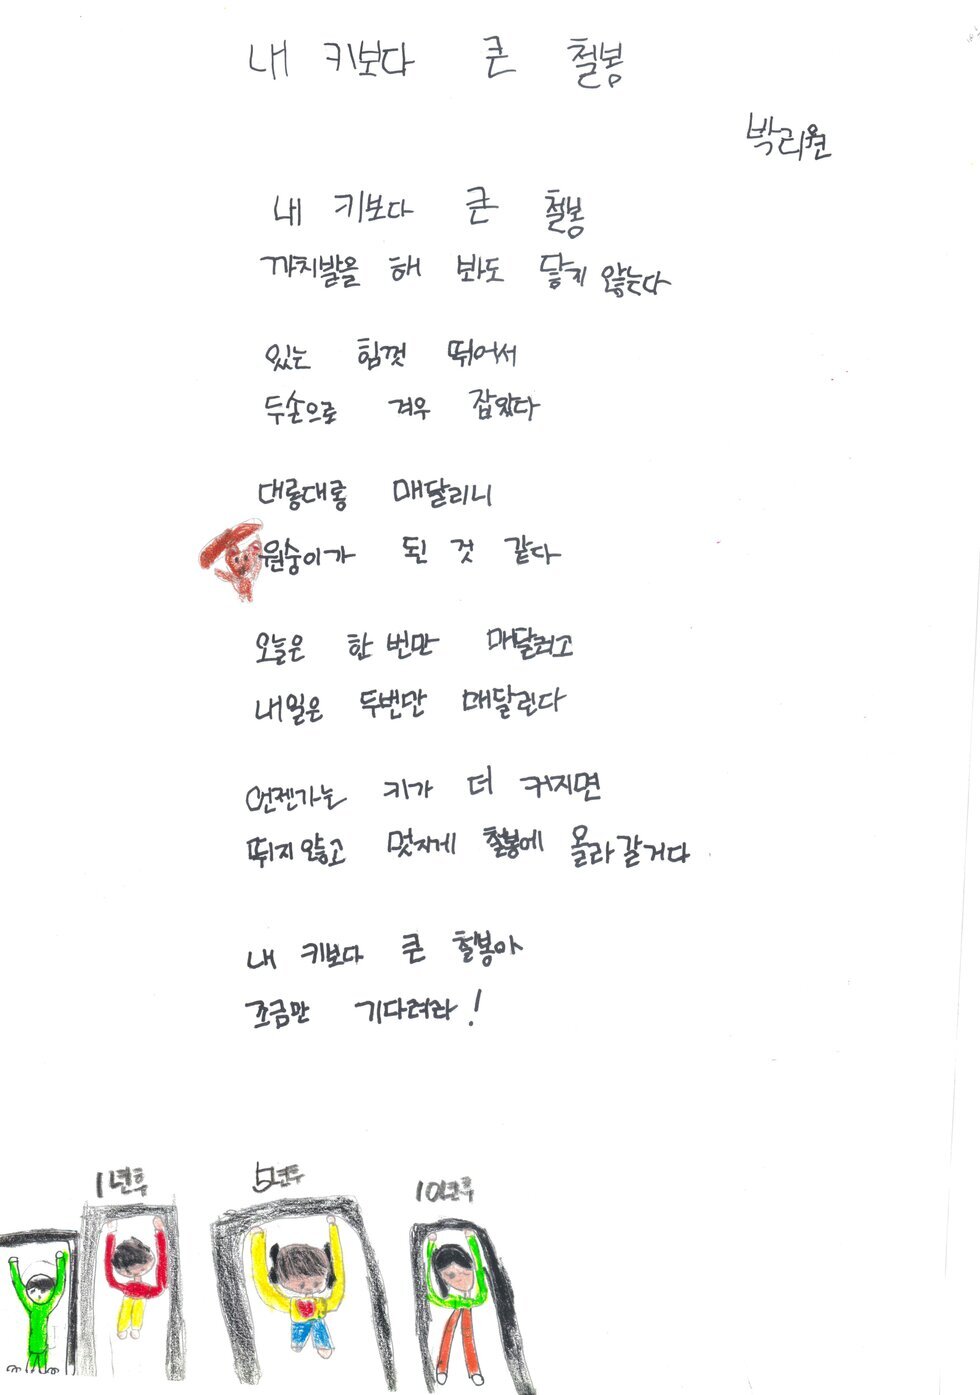 내 키보다 큰 철봉
박리원
내 키보다 큰 철봉
까치발을 해 봐도 닿지 않는다
있는 힘껏 뛰어서
두손으로 겨우 잡았다
대롱대롱 매달리니
원숭이가 된 것 같다
오늘은 한 번만 매달리고
내일은 두번만 매달린다
언젠가는 키가 더 커지면
뛰지 않고 멋지게 철봉에 올라갈거다
내 키보다 큰 철봉아
조금만 기다려라!
1년후
5년후
10년후